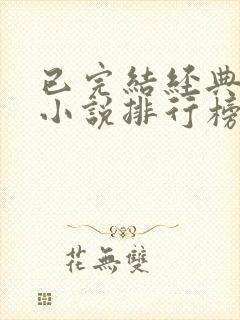 已完結經典
小說排行榜
花無雙